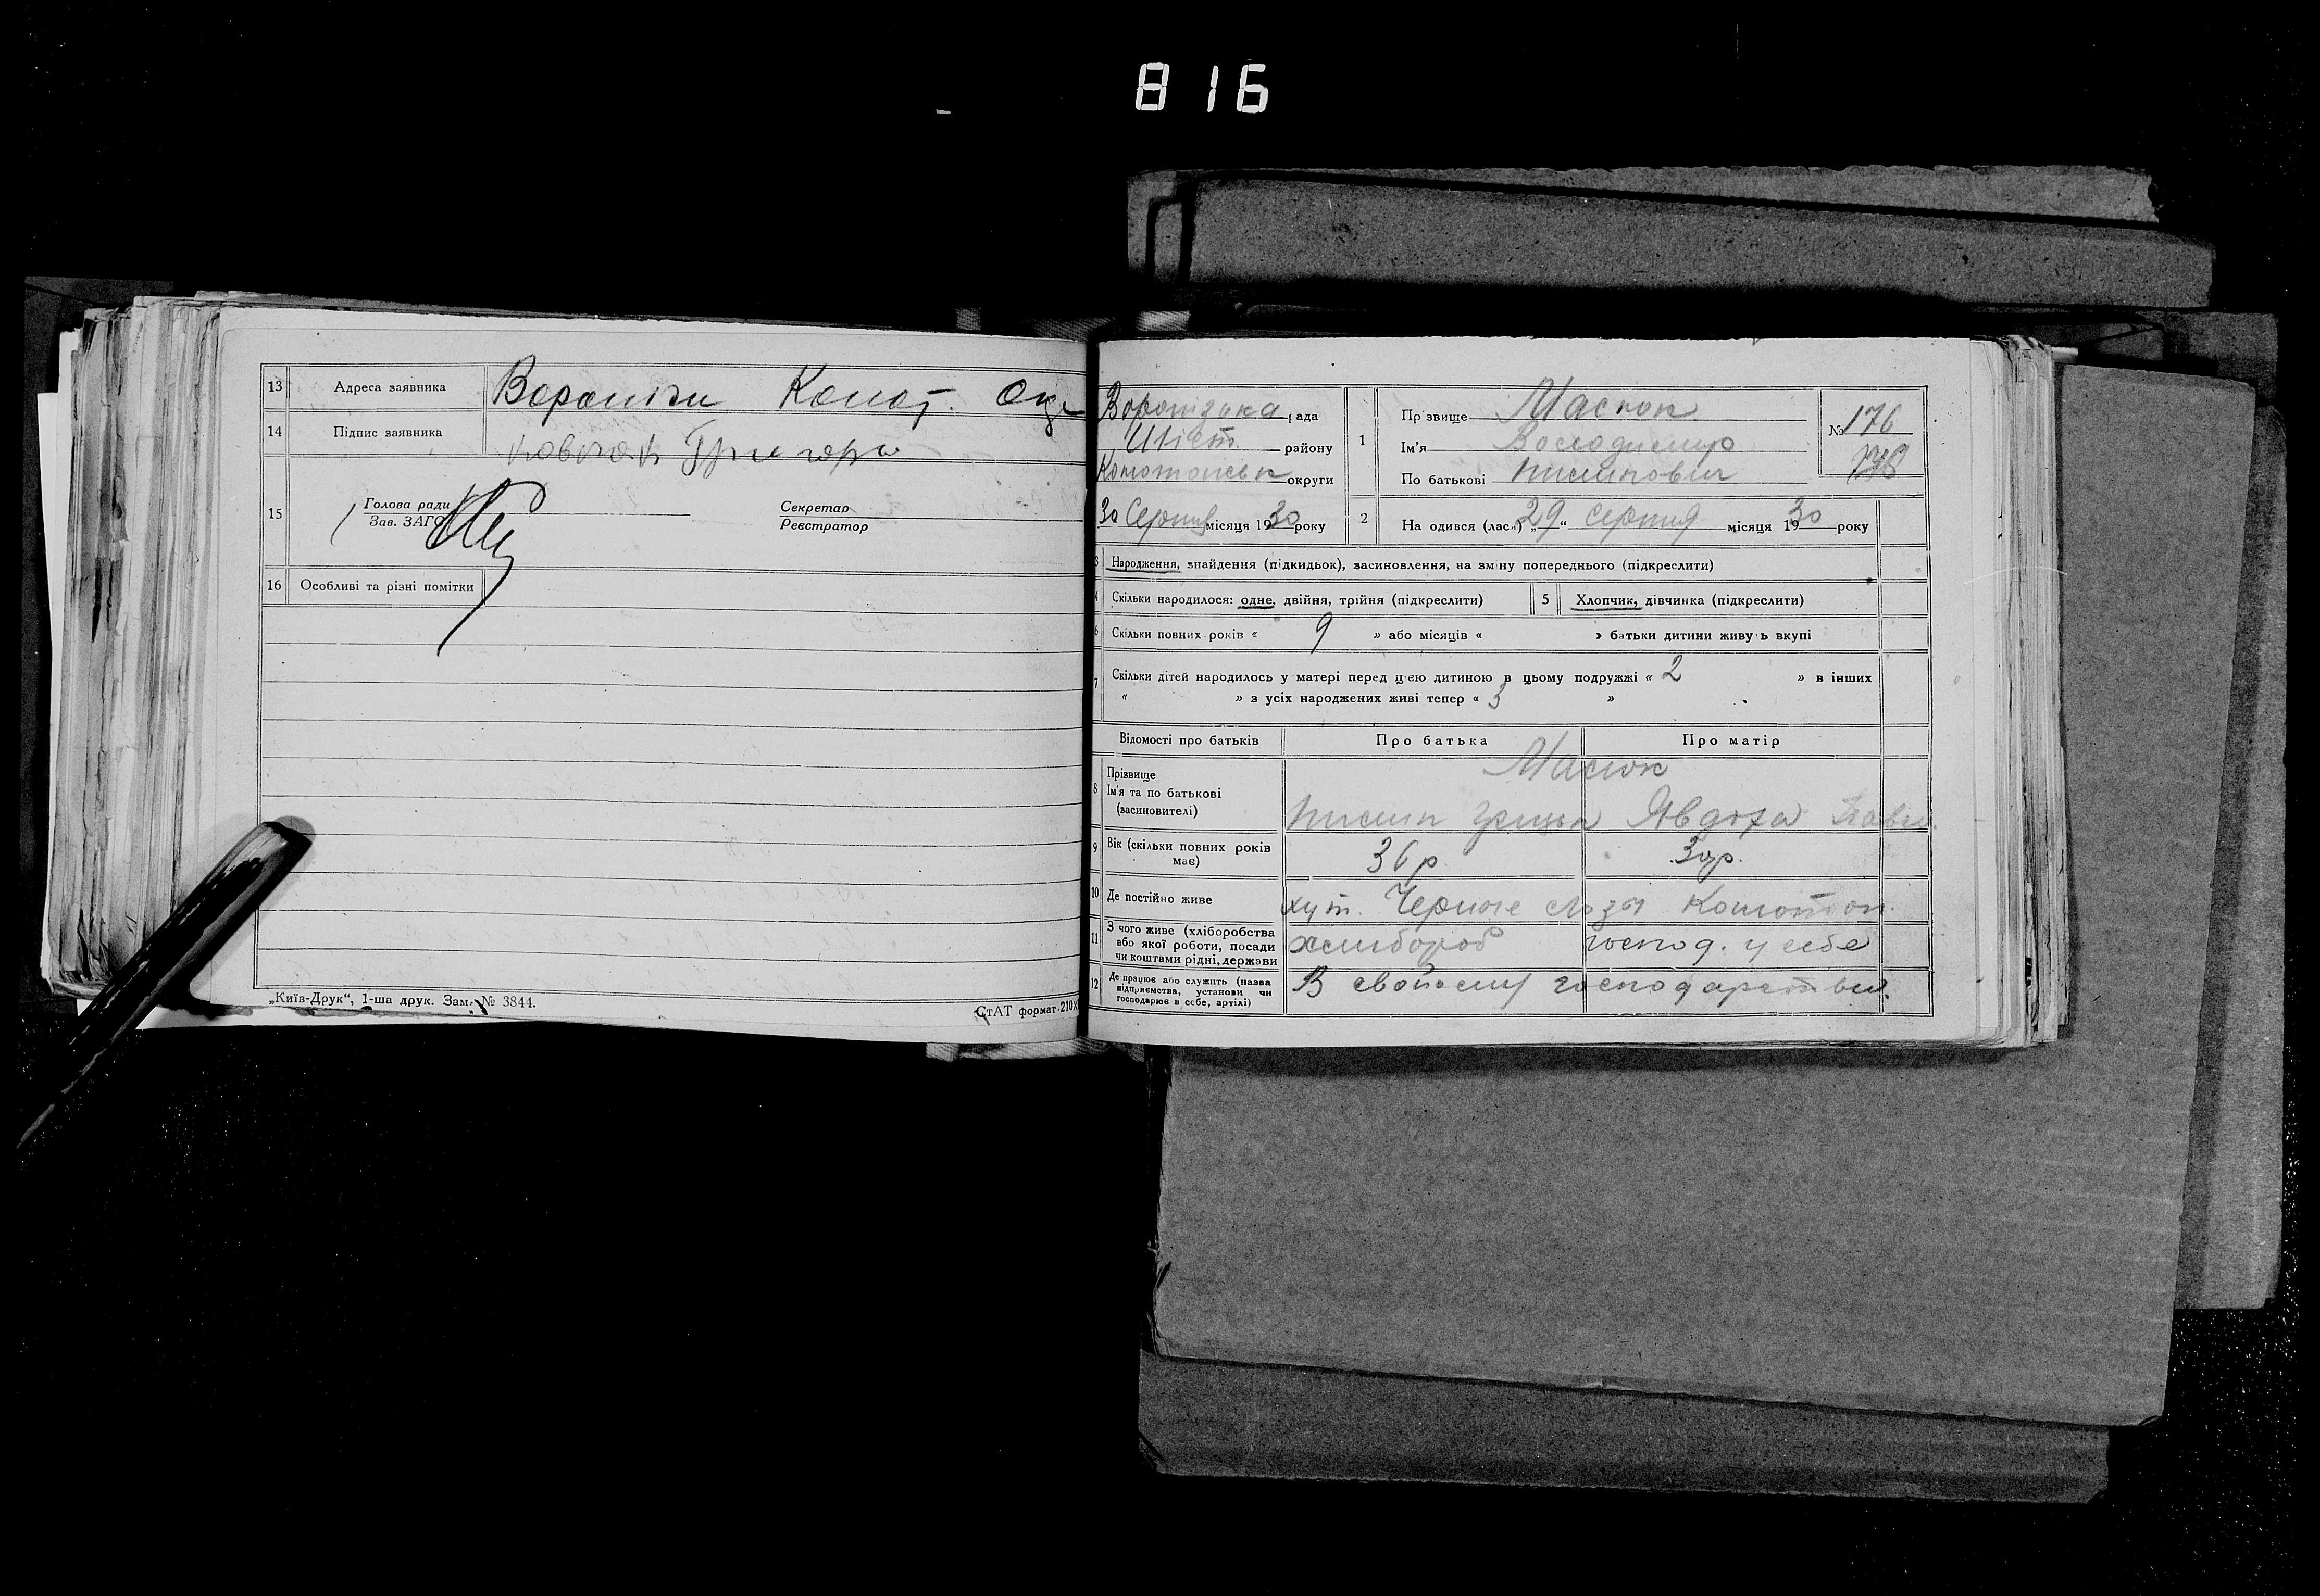 816
13 Адреса заявника Вороніжи Конот. Окр
14 Підпис заявника Григорій
15 Голова ради
Зав. ЗАГС
Секретар
Реєстратор
16 Особливі та різні помітки
„Київ-Друк“, 1-ша друк. Зам. № 3844.
СтАТ формат 210×
Вороізька рада
району
Конотопськ округи
30 Серпня місяця 1930 року
1 Прізвище Маслюк
Ім'я Володимир
По батькові
№ 176
178
2 Народився (лася) „29“ Серпня місяця 1930 року
3 Народження, знайдення (підкидьок), засиновлення, на зміну попереднього (підкреслити)
4 Скільки народилося: одне, двійня, трійня (підкреслити)
5 Хлопчик, дівчинка (підкреслити)
6 Скільки повних років « 9 » або місяців « » батьки дитини живуть вкупі
7 Скільки дітей народилось у матері перед цією дитиною в цьому подружжі « 2 » в інших
« » з усіх народжених живі тепер « 3 »
Відомості про батьків Про батька Про матір
8 Прізвище
Ім'я та по батькові
(засиновителі)
Маслюк
Явдоха Павл.
9 Вік (скільки повних років має) 36 р. 30 р.
10 Де постійно живе хут. Конотоп.
11 З чого живе (хліборобства
або якої роботи, посади
чи коштами рідні, держави
хлибороб господ. у себе
12 Де працює або служить (назва
підприємства, установи чи
господарює в себе, артілі)
В свойому господарстви.